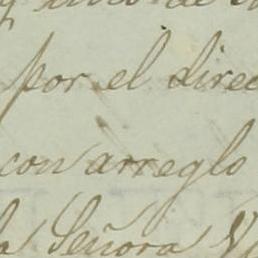 por el direc
con arreglo
la Señora